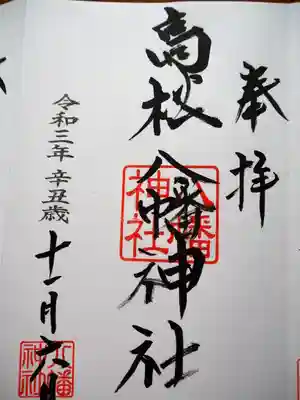 奉拝
高松八幡神社
八幡
神社
令和三年 辛丑歳
十一月六日
八幡
神社